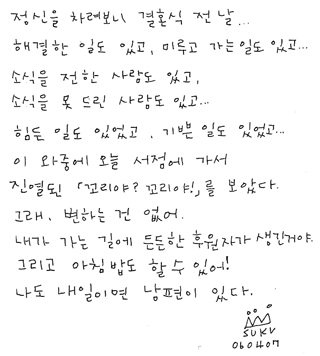 정신을 차려보니 결혼식 전 날...
해결한 일도 있고, 미루고 가는 일도 있고...
소식을 전한 사람도 있고,
소식을 못 드린 사람도 있고...
힘든 일도 있었고, 기쁜 일도 있었고...
이 와중에 오늘 서점에 가서
진열된 「꼬리야? 꼬리야!」를 보았다.
그래, 변하는 건 없어.
내가 가는 길에 든든한 후원자가 생긴거야.
그리고 아침밥도 할 수 있어!
나도 내일이면 남편이 있다.
SUKU
060407